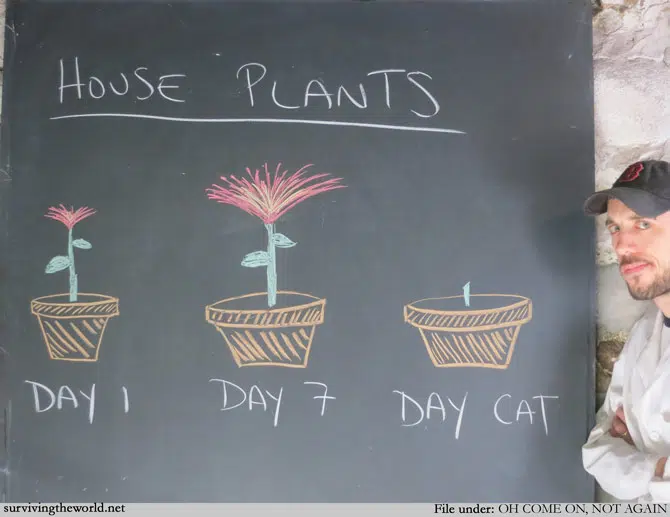 HOUSE PLANTS
DAY 1
DAY 7
DAY CAT
survivingtheworld.net
File under: OH COME ON, NOT AGAIN